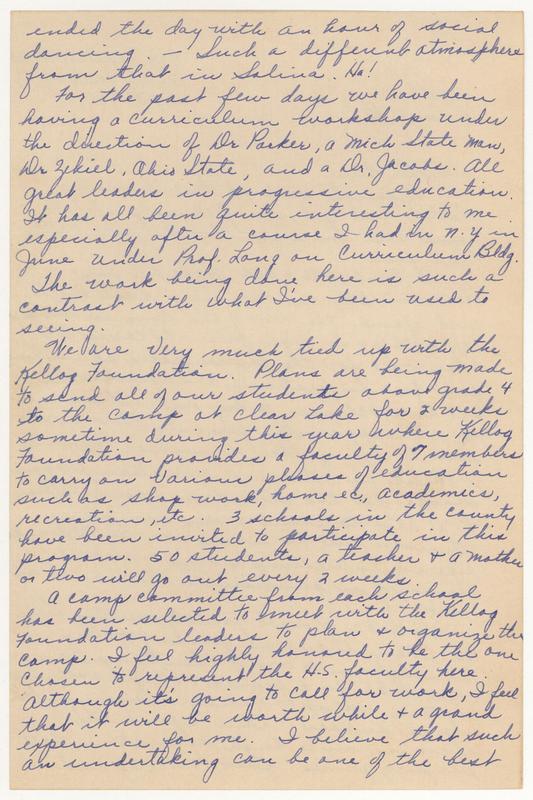 ended the day with an hour of social
dancing – Such a different atmosphere
from that in Salina. Ha!
For the past few days we have been
having a curriculum workshop under
the direction of Dr Parker, a Mich State man,
Dr Zekiel, Ohio State, and a Dr. Jacobs. All
great leaders in progressive education.
It has all been quite interesting to me
especially after a course I had in N.Y in
June under Prof. Long on Curriculum Bldg.
The work being done here is such a
contrast with what I've been used to
seeing.
We are very much tied up with the
Kellog Foundation. Plans are being made
to send all of our students above grade 4
to the camp at Clear Lake for 2 weeks
sometime during this year where Kellog
Foundation provides a faculty of 7 members
to carry on various phases of education
such as shop work, home ec., academics,
recreation, etc. 3 schools in the county
have been invited to participate in this
program. 50 students, a teacher + a mother
or two will go out every 2 weeks.
A camp committee from each school
has been selected to meet with the Kellog
Foundation leaders to plan + organize the
camp. I feel highly honored to be the one
chosen to represent the H.S. faculty here.
Although it's going to call for work, I feel
that it will be worth while + a grand
experience for me. I believe that such
an undertaking can be one of the best